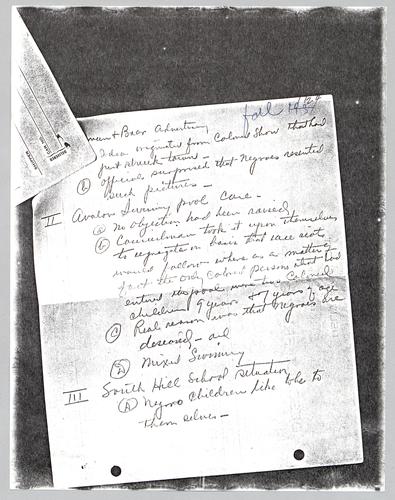 fall 1942
man & Bear Advertising
Idea originated from Colored Show that had
just struck town -
(b) officials surprised that Negroes resented
such pictures -
II Avalon Swimming pool case -
(a) No objection had been raised,
(b) Councilmen took it upon themselves
to segregate on basis that race riots
would follow where as a matter
of fact the only colored persons that had
entered the pool were two colored
children 9 years & 7 years of age
(C) Real reason was that Negroes are
diseased, - and
(D) Mixed Swimming
III South Hill School situation,
(A) Negro children like to be to
them selves -